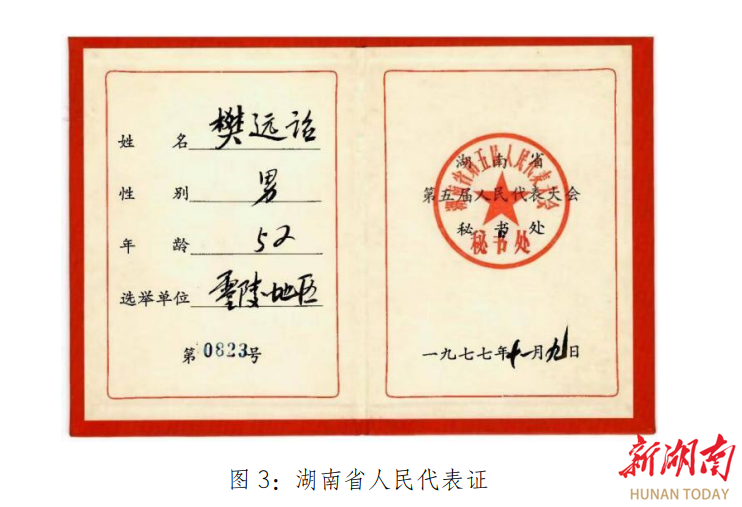 姓 名 樊远诒
性 别 男
年 龄 52
选举单位 零陵地区
第0823号
湖南省
第五届人民代表大会
秘书处
湖南省第五届人民代表大会
秘书处
一九七七年十一月九日
图 3：湖南省人民代表证
新湖南
HUNAN TODAY